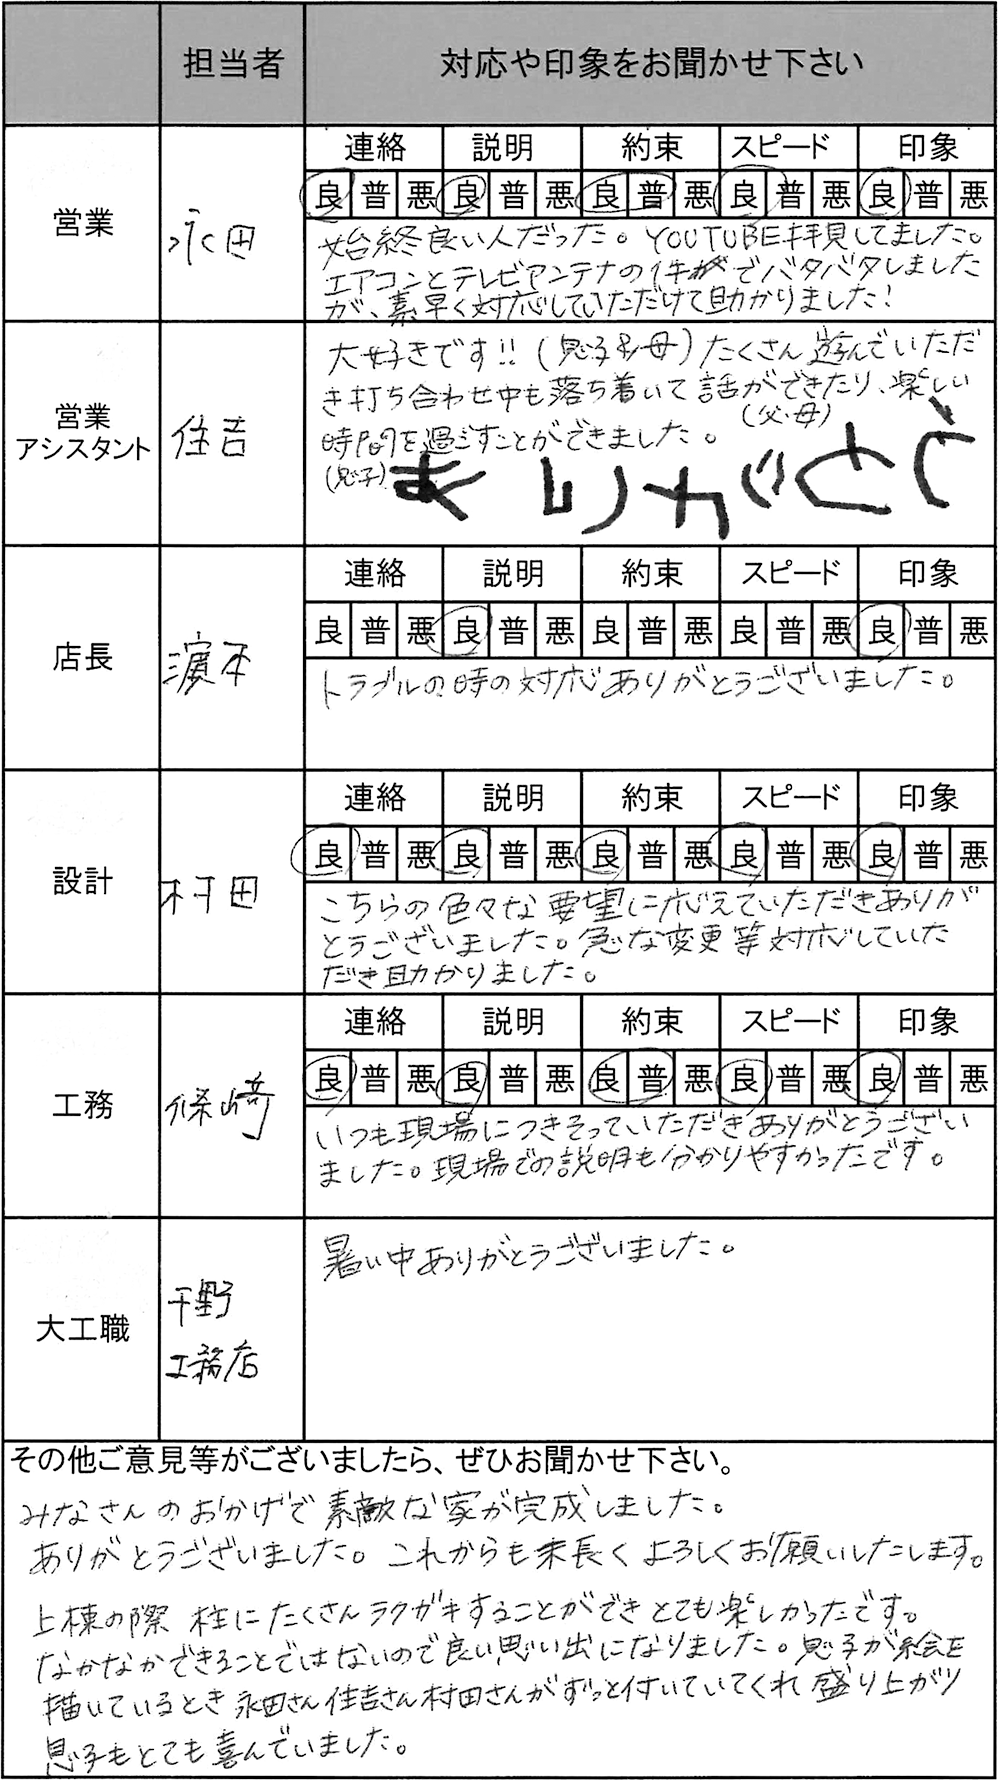 担当者 対応や印象をお聞かせ下さい
営業 永田
連絡 説明 約束 スピード 印象
良 普 悪 良 普 悪 良 普 悪 良 普 悪 良 普 悪
始終良い人だった。YOUTUBE拝見してました。
エアコンとテレビアンテナの件がでバタバタしました
が、素早く対応していただけて助かりました!
営業
アシスタント 住吉
大好きです!!(息子&母)たくさん遊んでいただ
き打ち合わせ中も落ち着いて話ができたり、楽しい
時間を過ごすことができました。(父・母)
(息子)ありがとう
店長 濵本
連絡 説明 約束 スピード 印象
良 普 悪 良 普 悪 良 普 悪 良 普 悪 良 普 悪
トラブルの時の対応ありがとうございました。
設計 村田
連絡 説明 約束 スピード 印象
良 普 悪 良 普 悪 良 普 悪 良 普 悪 良 普 悪
こちらの色々な要望に応えていただきありが
とうございました。急な変更等対応していた
だき助かりました。
工務 條﨑
連絡 説明 約束 スピード 印象
良 普 悪 良 普 悪 良 普 悪 良 普 悪 良 普 悪
いつも現場につきそっていただきありがとうござい
ました。現場での説明も分かりやすかったです。
大工職 平野
工務店
暑い中ありがとうございました。
その他ご意見等がございましたら、ぜひお聞かせ下さい。
みなさんのおかげで素敵な家が完成しました。
ありがとうございました。これからも末長くよろしくお願いいたします。
上棟の際 柱にたくさんラクガキすることができとても楽しかったです。
なかなかできることではないので良い思い出になりました。息子が絵を
描いているとき永田さん住吉さん村田さんがずっと付いていてくれ盛り上がり
息子もとても喜んでいました。